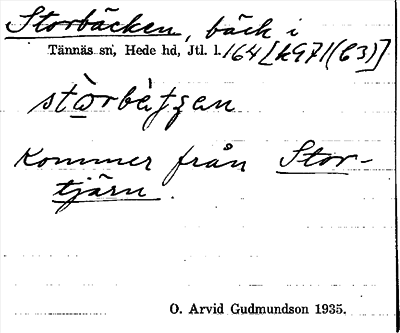 Storbäcken, bäck i
Tännäs sn, Hede hd, Jtl. l. 164 [k971(63)]
kommer från Stor-
tjärn.
O. Arvid Gudmundson 1935.